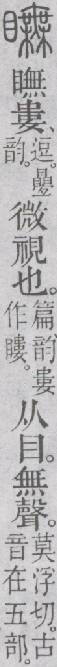 瞴瞴婁、逗。曡韵。微視也。篇韵婁作瞜。从目。無聲。莫浮切。古音在五部。